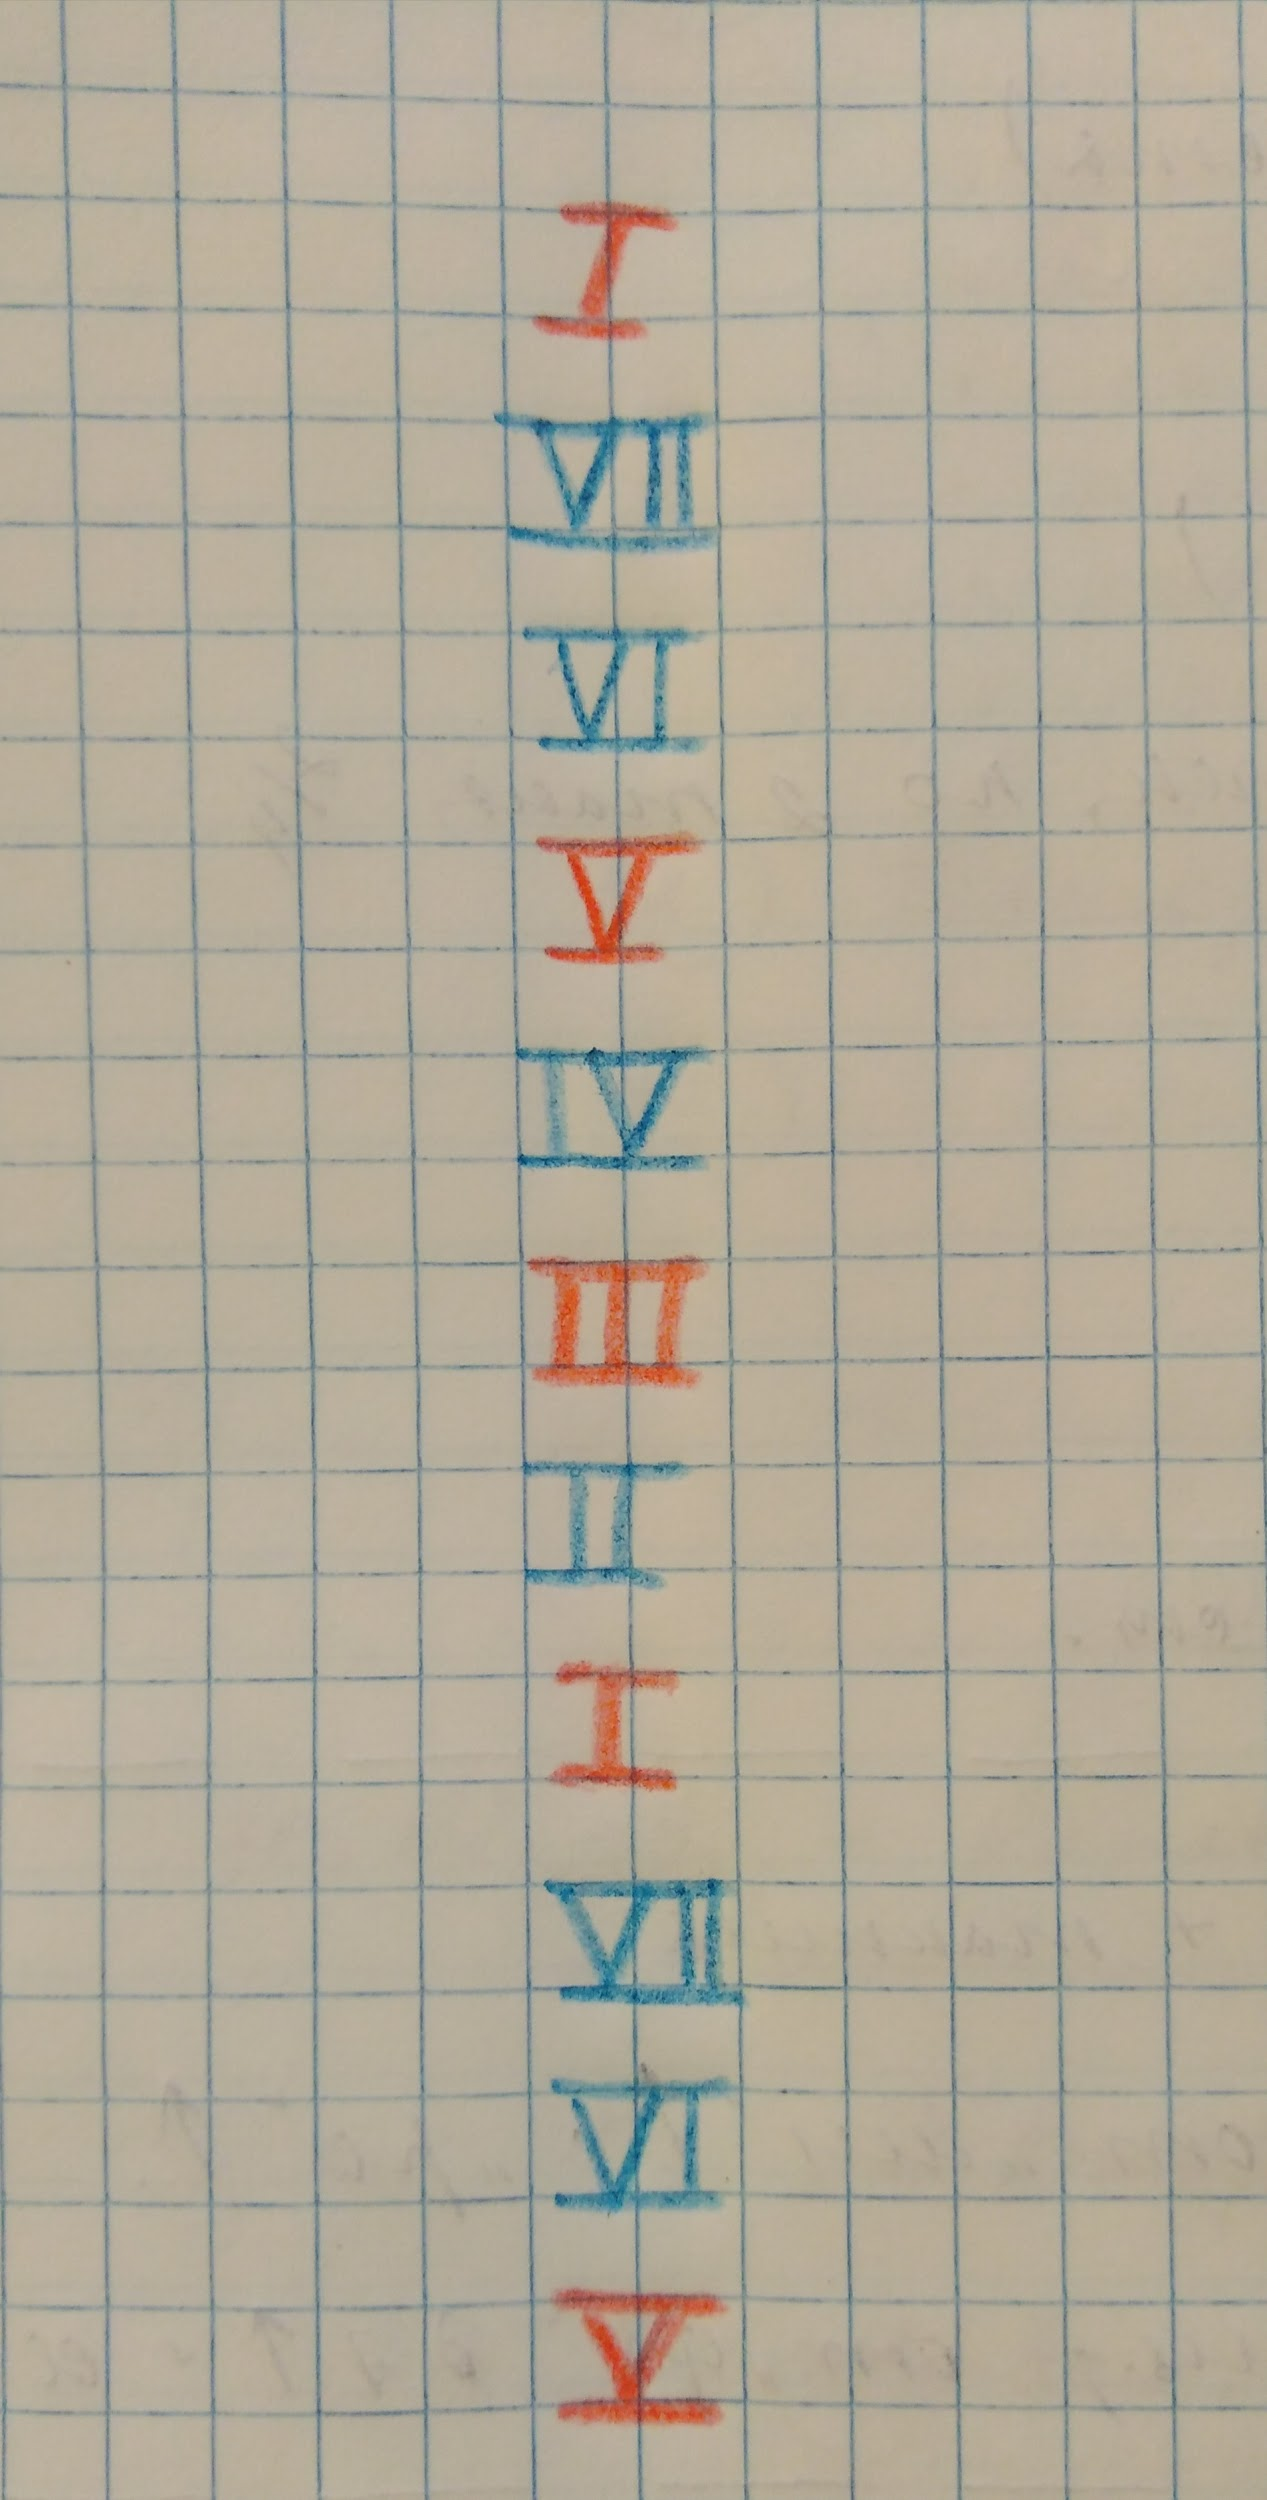 I
VII
VI
V
IV
III
II
I
VII
VI
V